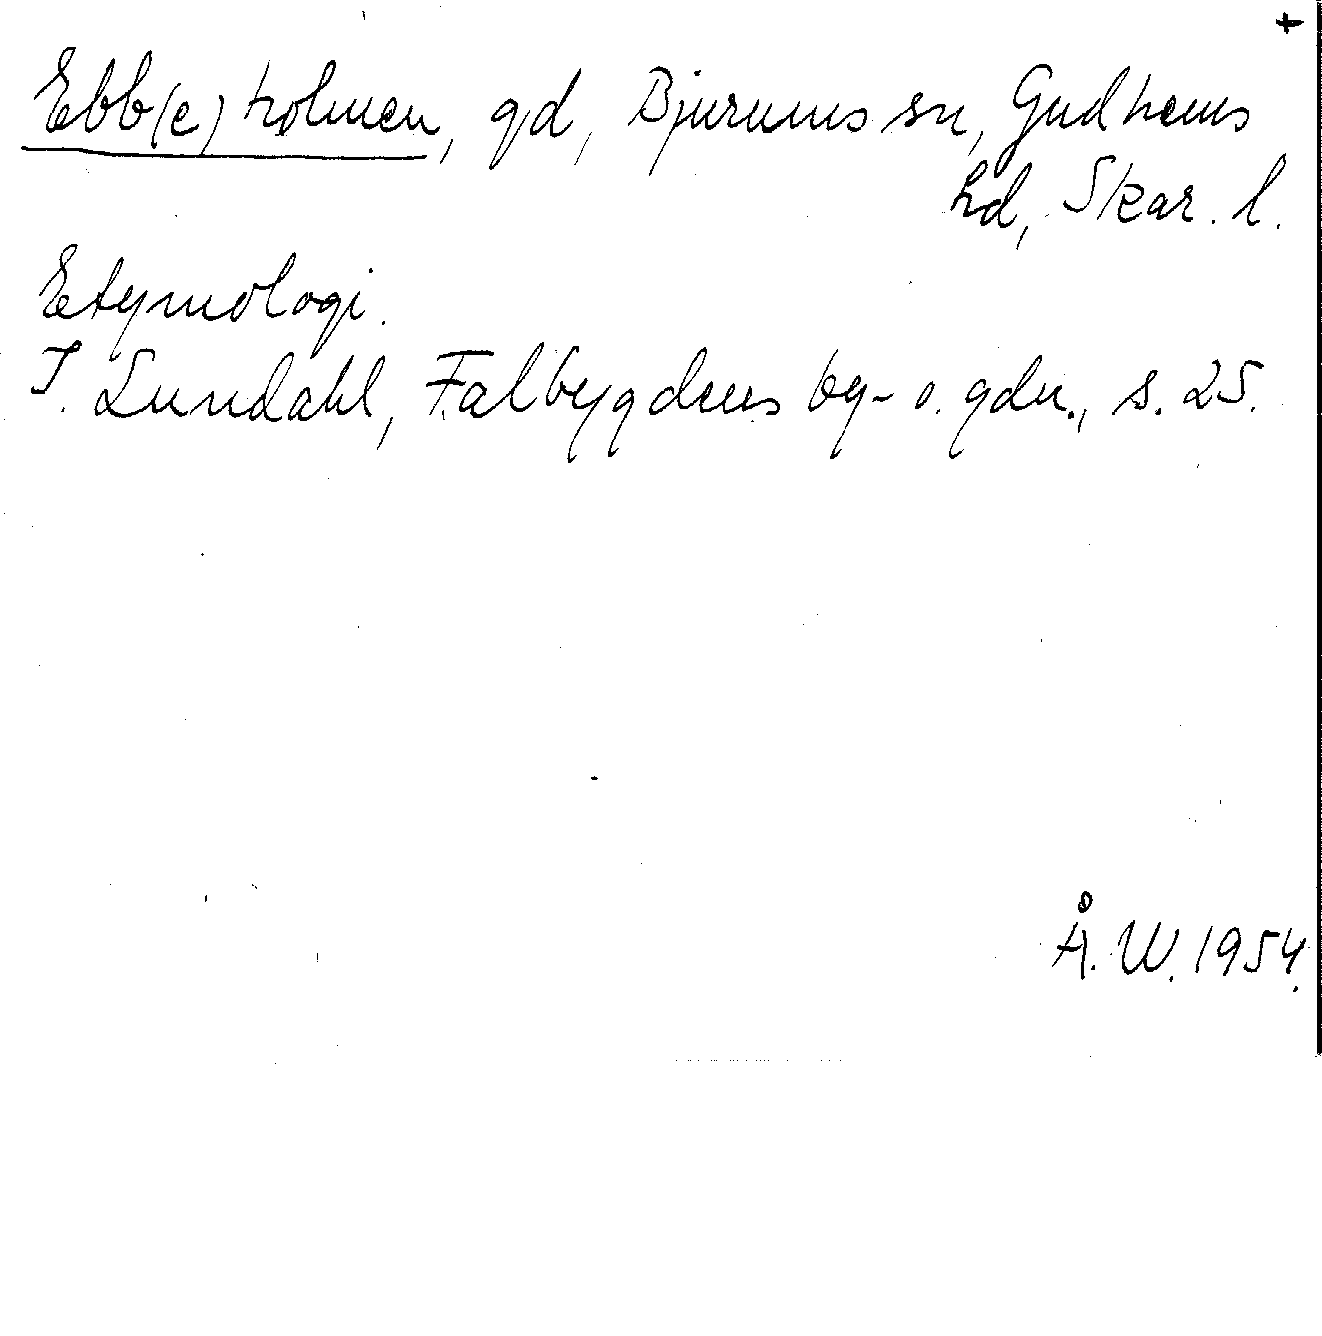 +
Ebb(e)holmen, gd, Bjurums sn, Gudhems
hd, Skar. l.
Etymologi.
I. Lundahl, Falbygdens by- o. gdn., s. 25.
Å. W. 1954.